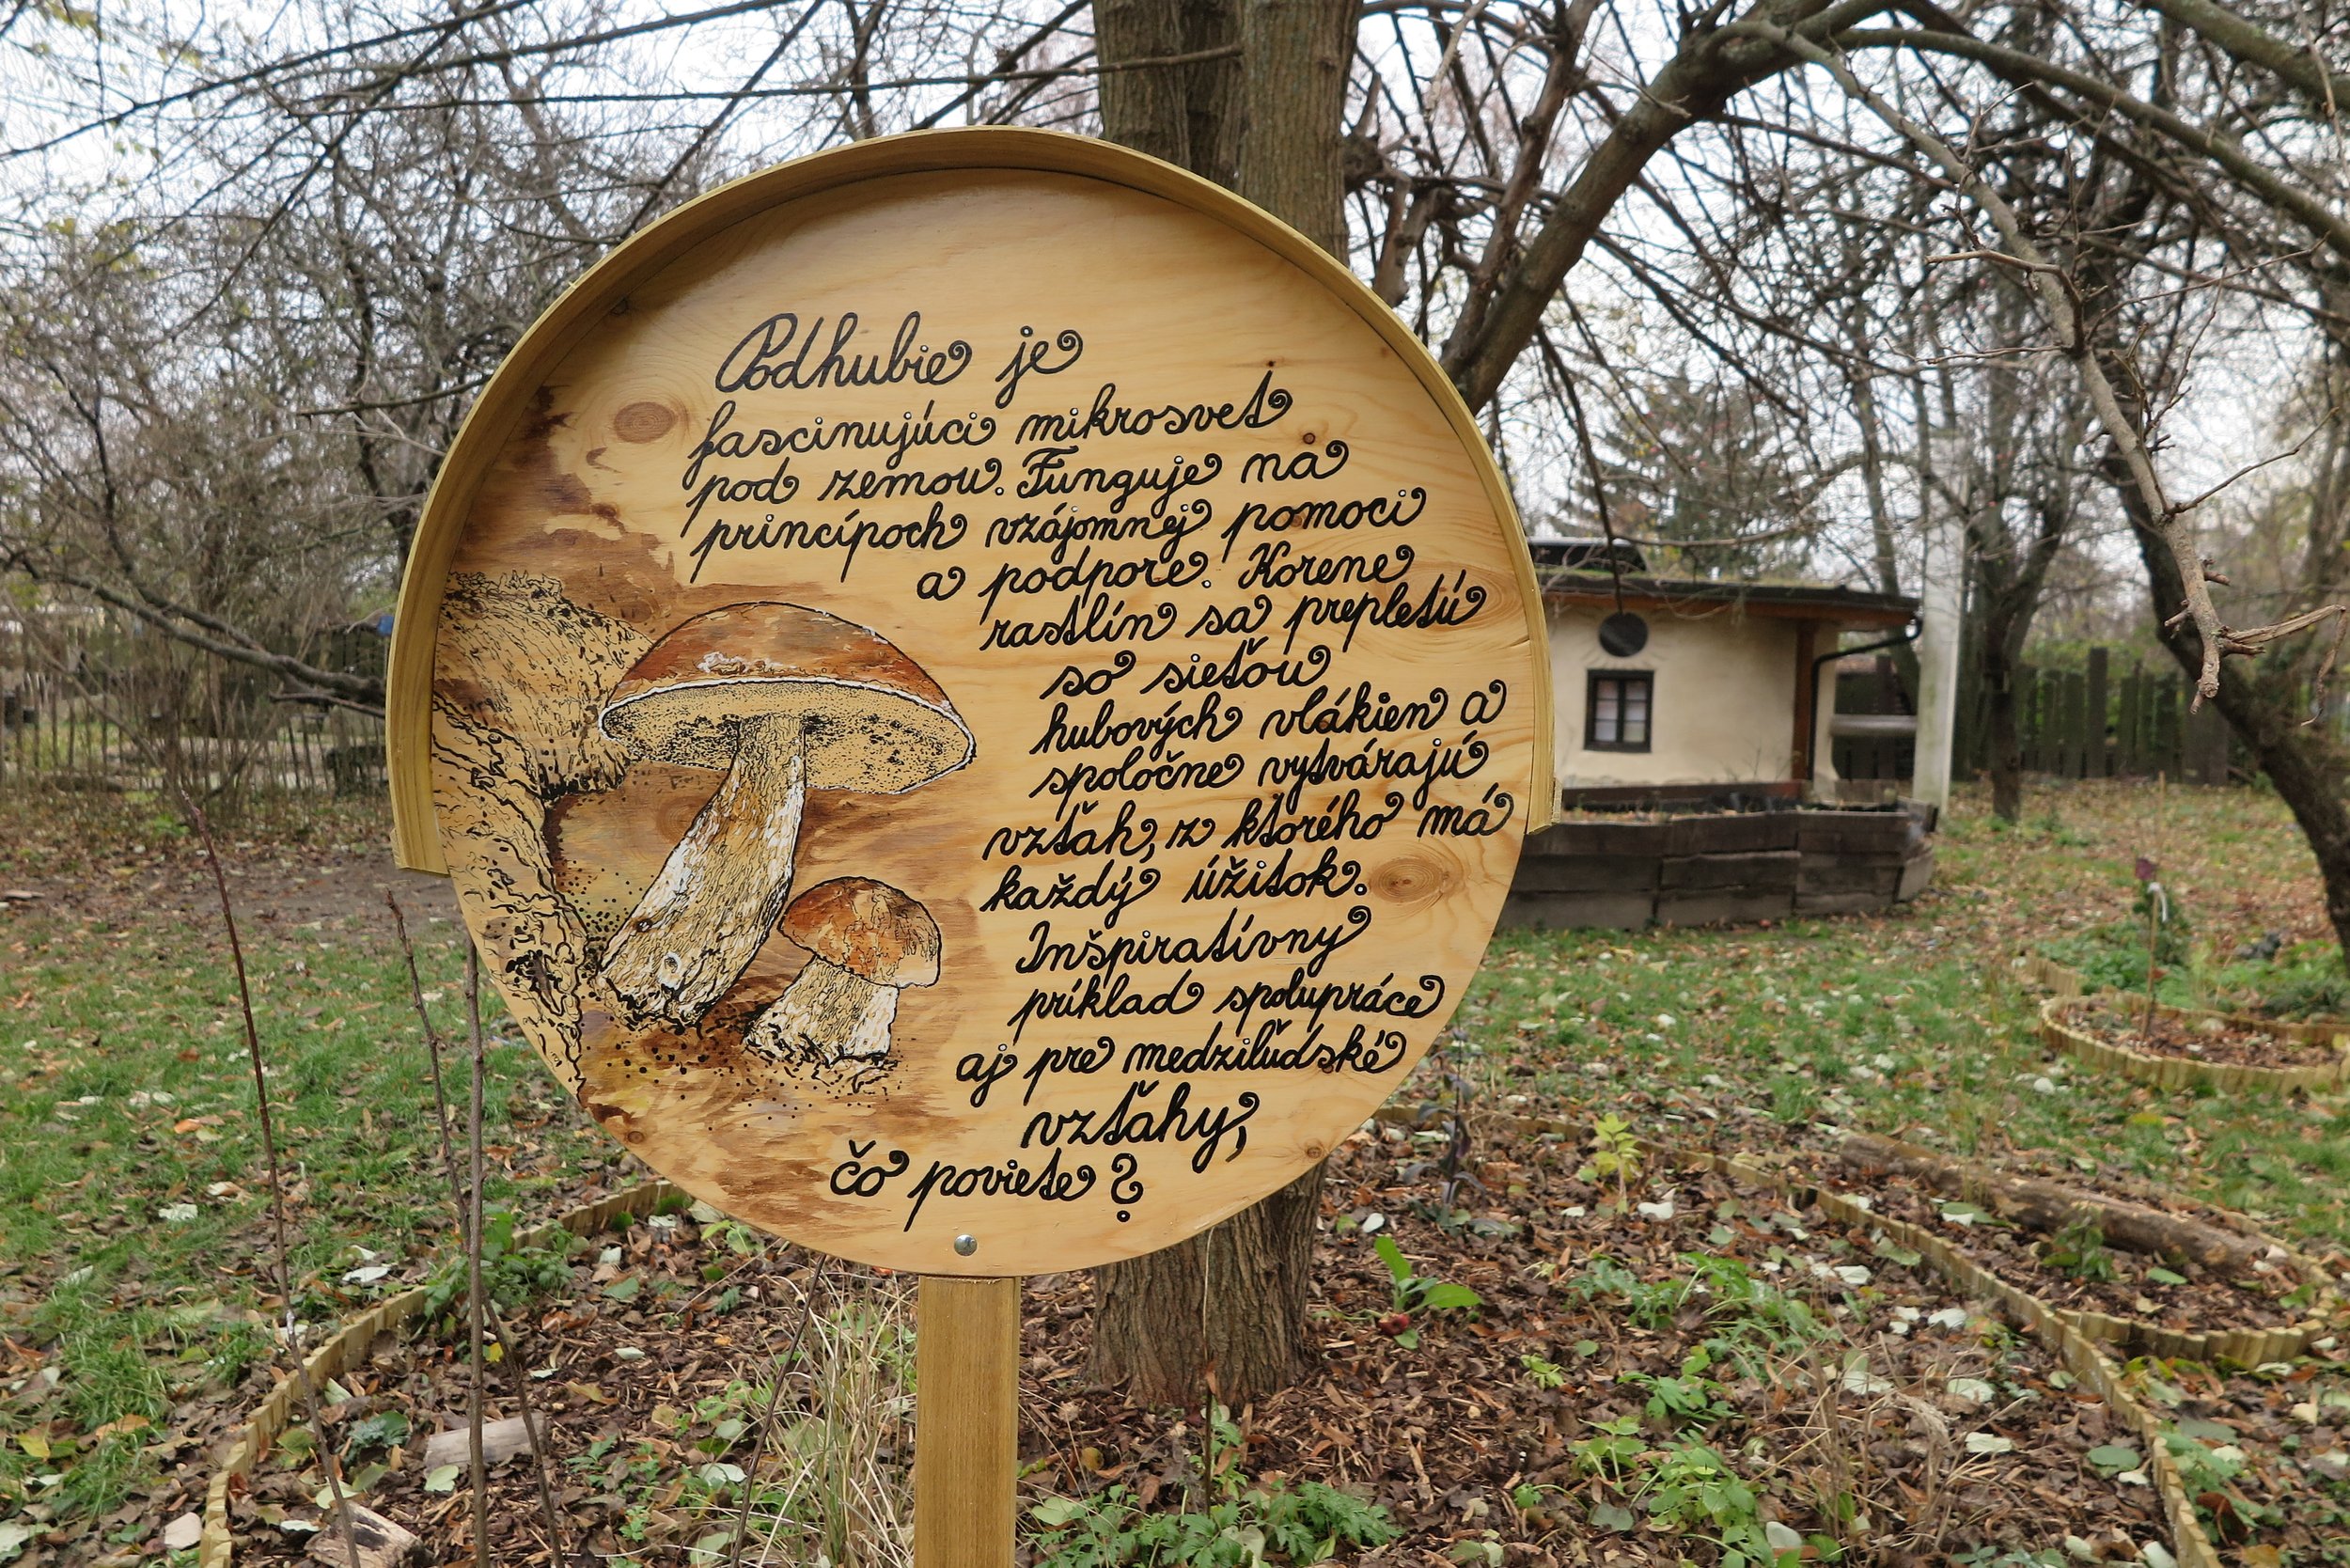 Podhubie je
fascinujúci mikrosvet
pod zemou. Funguje na
princípoch vzájomnej pomoci
a podpore. Korene
rastlín sa prepletú
so sieťou
hubových vlákien a
spoločne vytvárajú
vzťah, z ktorého má
každý úžitok.
Inšpiratívny
príklad spolupráce
aj pre medziľudské
vzťahy,
čo poviete?